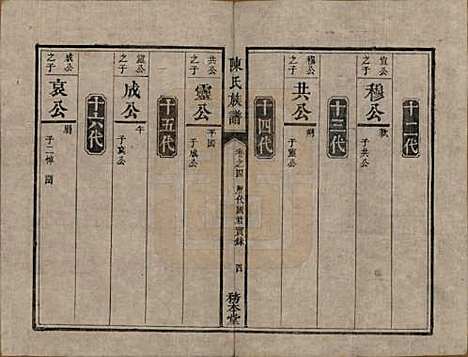 十二代
宣公之子
穆公 款
子共公
十三代
穆公之子
共公 朔
子靈公
十四代
陳氏族譜
卷之四 歷代國君實錄 四
務本堂
共公之子
靈公 平國
子成公
十五代
靈公之子
成公 午
子哀公
十六代
成公之子
哀公 溺
子二悼 留